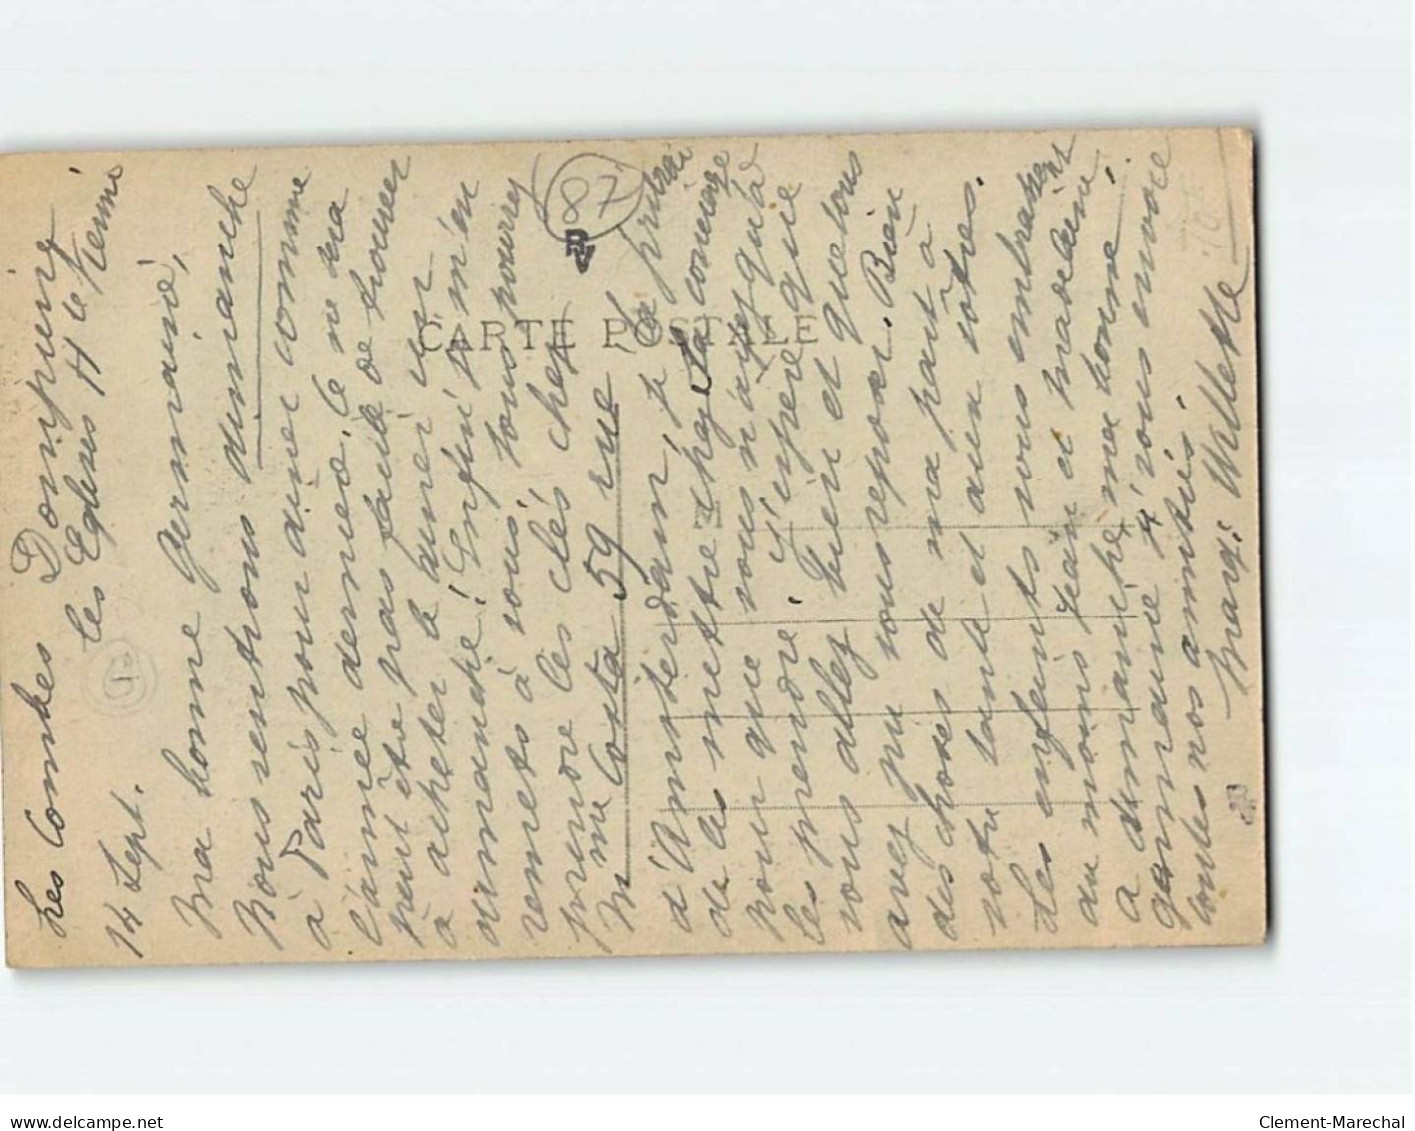 Les Combes Dompierre
les Eglises Hte Vienne
14 Sept.
Ma bonne Germaine,
Nous rentrons dimanche
à Paris pour dîner comme
l'année dernière. Ce ne sera
peut être pas facile de trouver
à acheter le dîner
dimanche! Enfin je m'en
remets à vous. Vous pourrez
prendre les clés chez
Mme Costa 59 rue
d'Amsterdam, je la prierai
de les mettre chez la concierge
pour que vous n'ayez qu'à
les prendre. J'espère que
vous allez bien et que vous
avez pu vous reposer. Bien
des choses de ma part à
votre tante et aux vôtres.
Les enfants vous embrassent
du moins Jean et Madeleine.
A dimanche ma bonne
Germaine je vous envoie
toutes nos amitiés.
Marg: Willette
CARTE POSTALE
87
PV
Clement-Marechal
delcampe.net